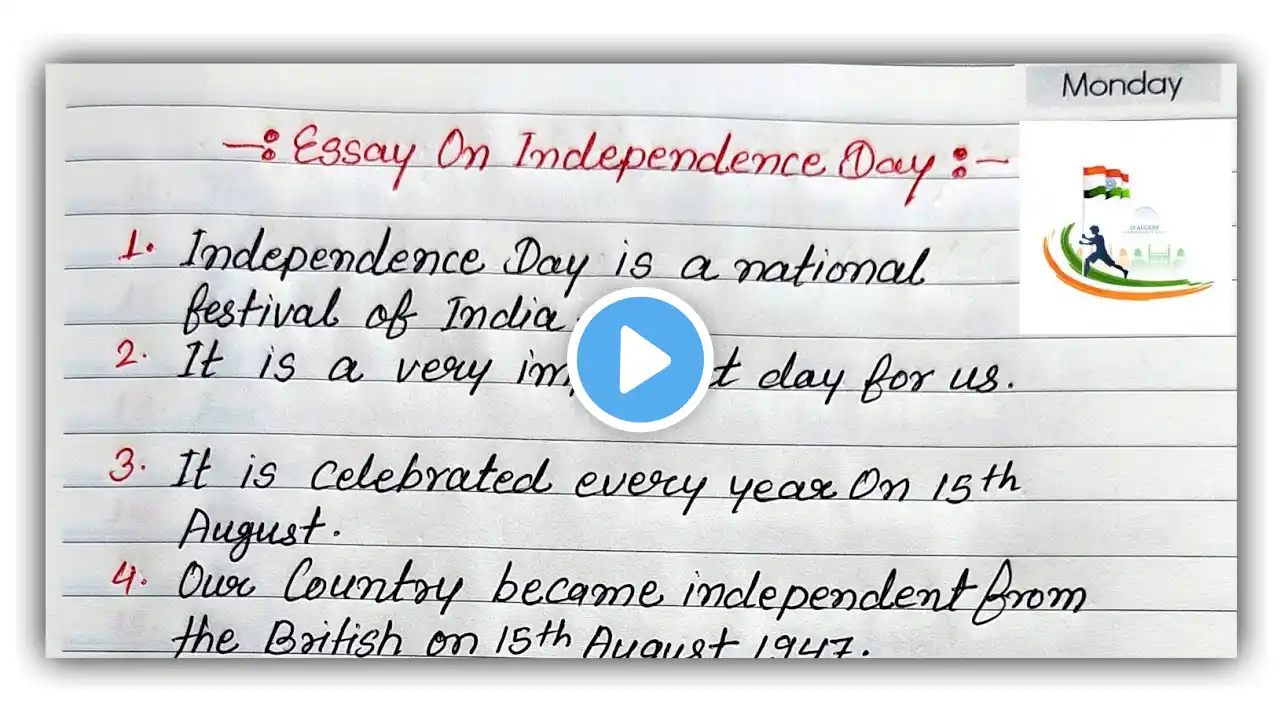 Monday
-: Essay On Independence Day :-
1. Independence Day is a national
festival of India.
2. It is a very day for us.
3. It is celebrated every year On 15th
August.
4. Our Country became independent from
the British on 15th August 1947.
15 AUGUST